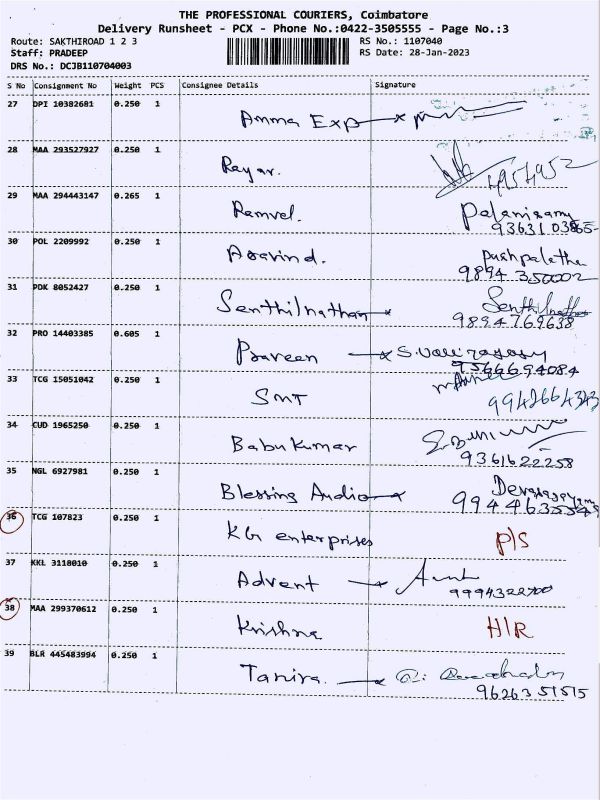 THE PROFESSIONAL COURIERS, Coimbatore
Delivery Runsheet - PCX - Phone No.:0422-3505555 - Page No.:3
Route: SAKTHIROAD 1 2 3 RS No.: 1107040
Staff: PRADEEP RS Date: 28-Jan-2023
DRS No.: DCJB110704003
S No Consignment No Weight PCS Consignee Details Signature
27 DPI 10382681 0.250 1
Amma Exp
28 MAA 293527927 0.250 1
Rayar. 4954952
29 MAA 294443147 0.265 1
Ramvel. Palanisamy
30 POL 2209992 0.250 1
Aravind. Pushpalatha
9894 350002
31 PDK 8052427 0.250 1
Senthilnathan Senthilnathan
9894769638
32 PRO 14403385 0.605 1
Praveen
9566694084
33 TCG 15051042 0.250 1
SMT 9942664343
34 CUD 1965250 0.250 1
Babu Kumar
9361622258
35 NGL 6927981 0.250 1
Blessing Audio
36 TCG 107823 0.250 1
KG enterprises P/S
37 KKL 3118010 0.250 1
Advent
9994322700
38 MAA 299370612 0.250 1
Krishna H/R
39 BLR 445483994 0.250 1
Tanira.
9626351515